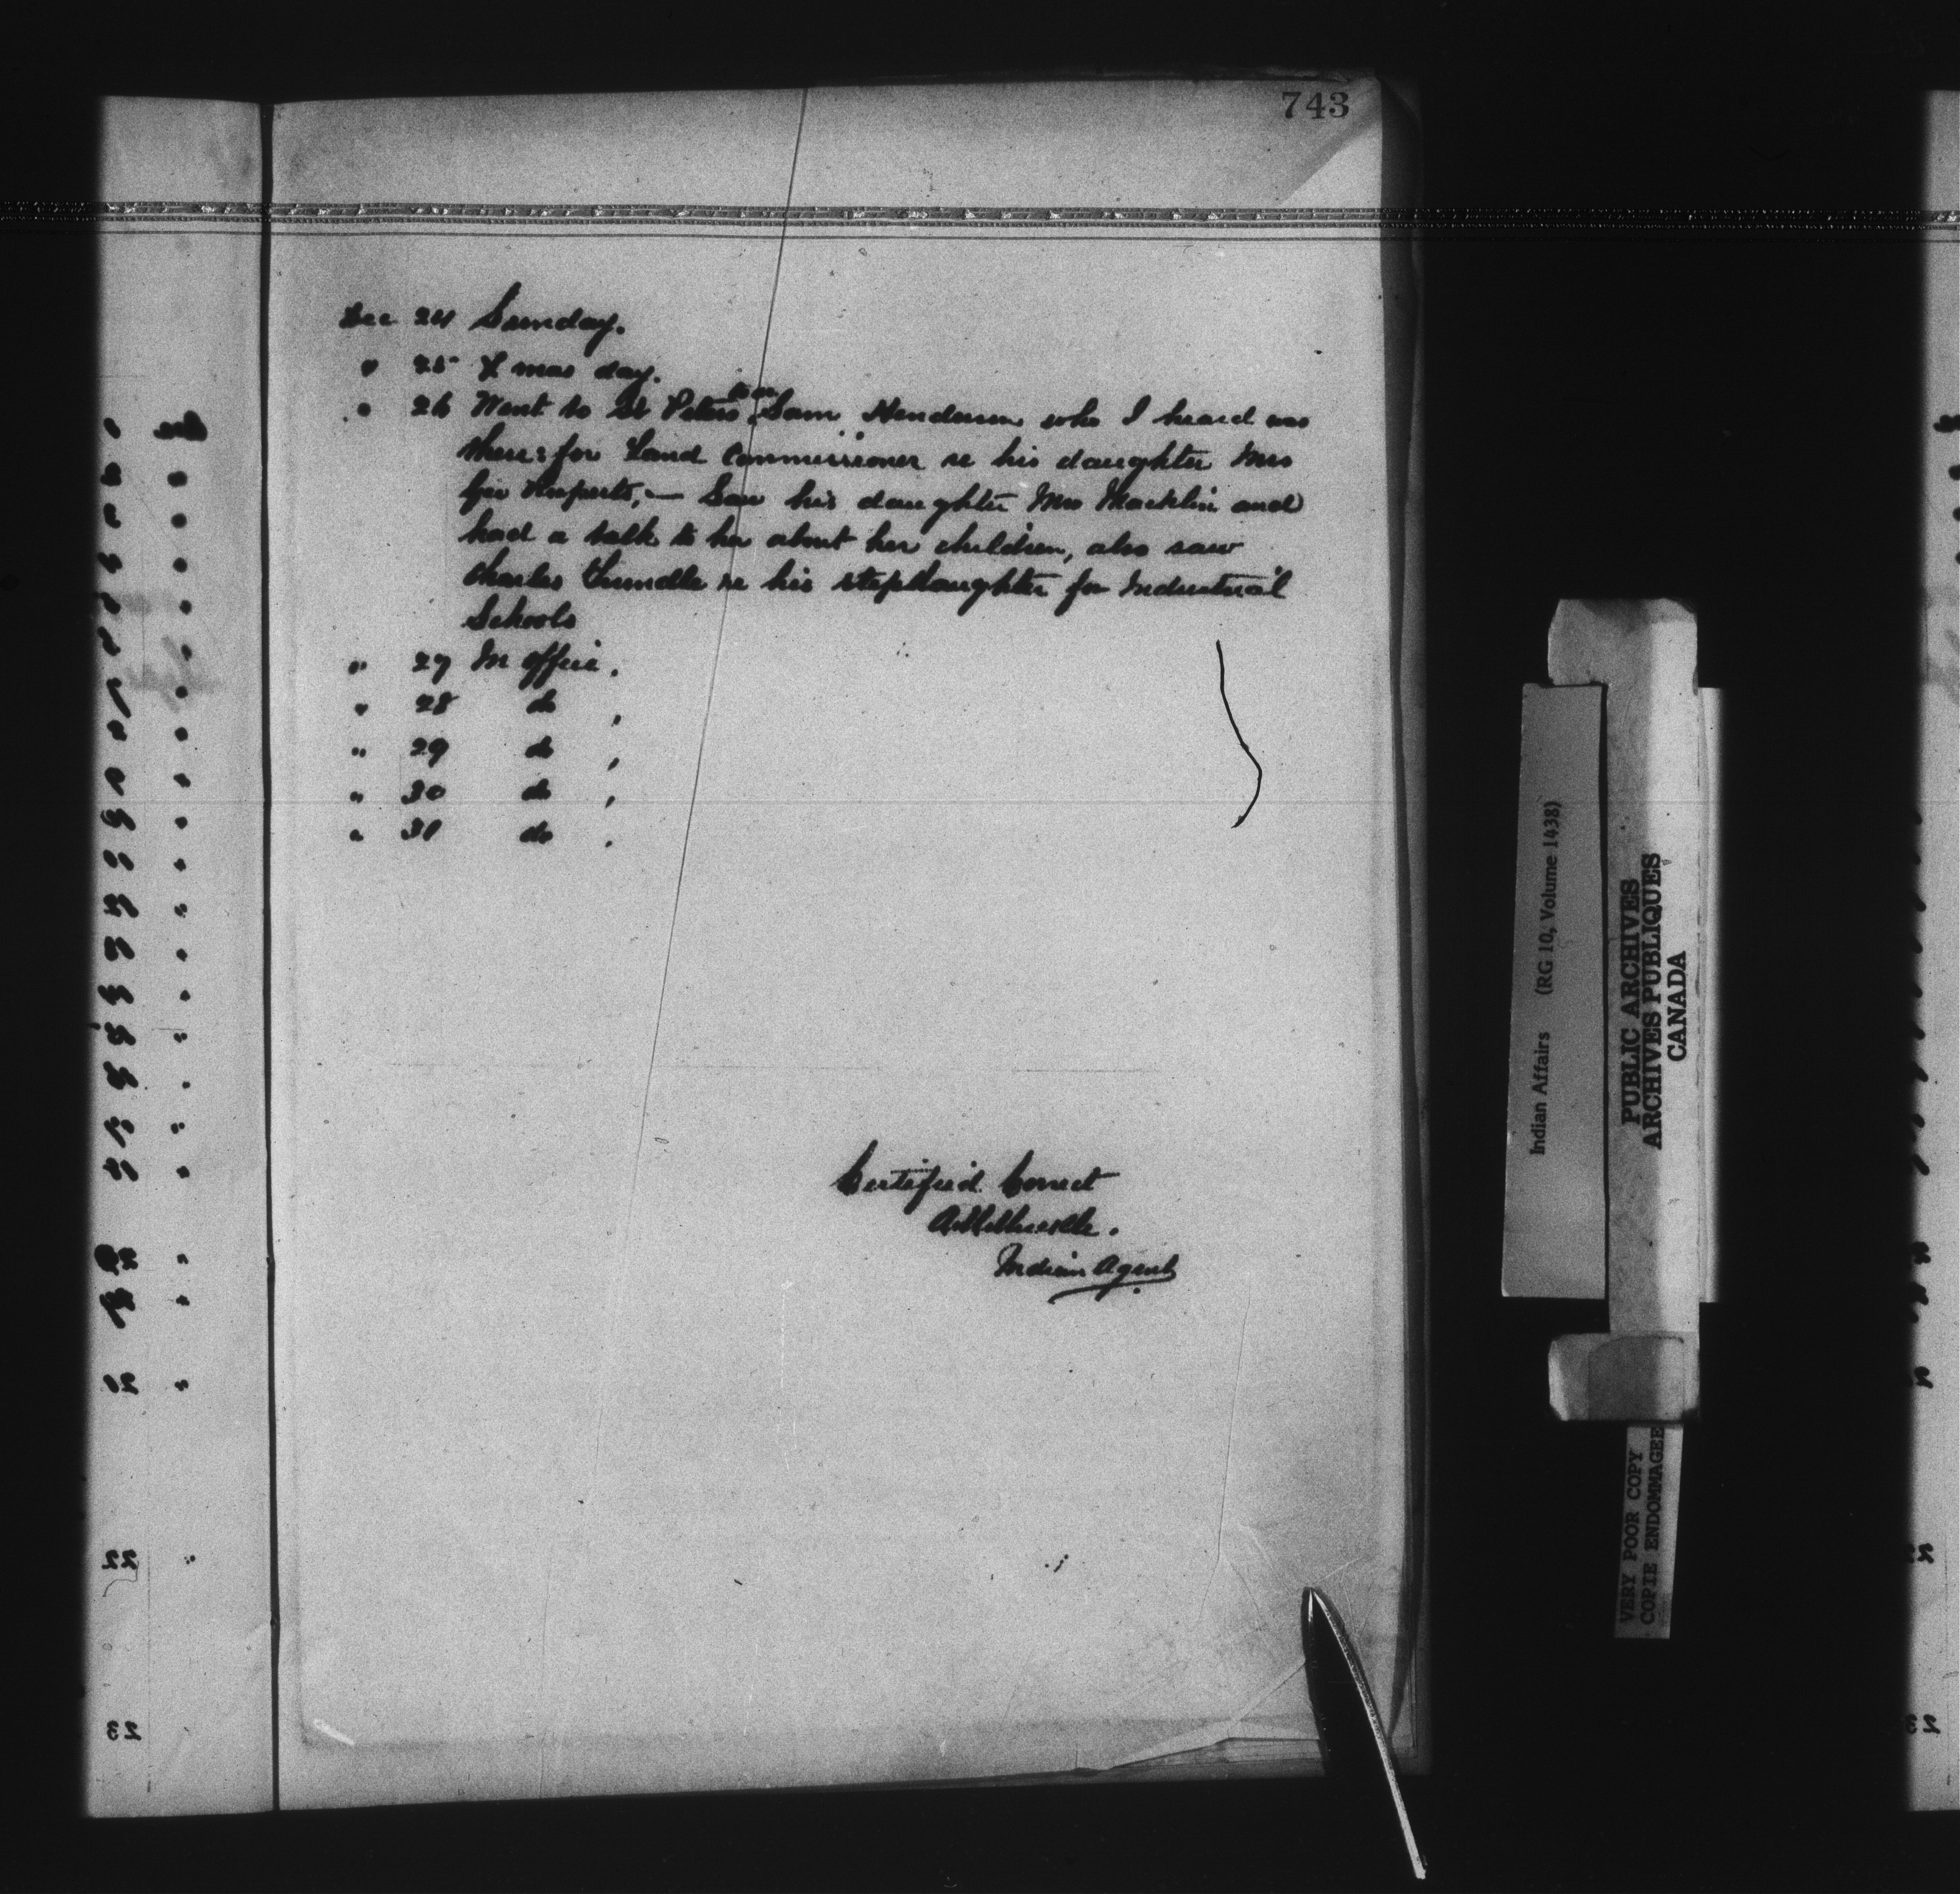 743
Dec 24 Sunday.
" 25 X mas day.
to see
" 26 Went to St Peters Sam Henderson who I heard was
there for Land Commissioner re his daughter Mrs
Saw his daughter Mrs Macklin and
had a talk to her about her children, also saw
Charles re his stepdaughter for Industrial
Schools
" 27 In office.
" 28 do ,
" 29 do ,
" 30 do ,
" 31 do .
Certified Correct
Indian Agent
Indian Affairs (RG 10, Volume 1438)
PUBLIC ARCHIVES
ARCHIVES PUBLIQUES
CANADA
VERY POOR COPY
COPIE ENDOMMAGEE
22
23